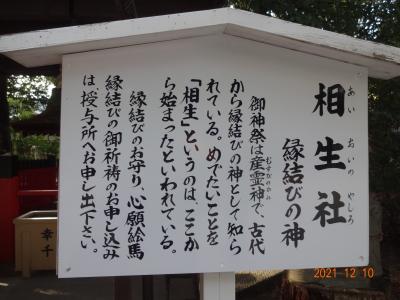 相生社
あい おいの やしろ
縁結びの神
御神祭は産霊神で、古代
むすびのかみ
から縁結びの神として知ら
れている。めでたいことを
「相生」というのは、ここか
ら始まったといわれている。
縁結びのお守り、心願絵馬
縁結びの御祈祷のお申し込み
は、授与所へお申し出下さい。
幸千
2021 12 10